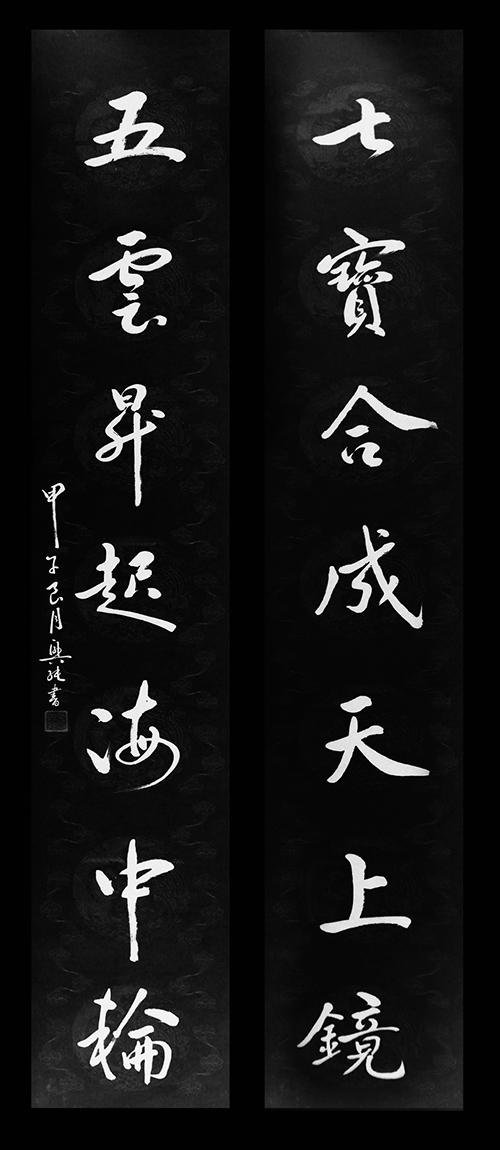 七寶合成天上鏡
五雲昇起海中輪
甲子良月興
書